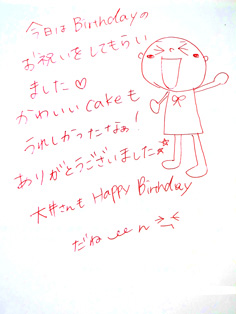 今日はBirthdayの
お祝いをしてもらい
ました♡
かわいいcakeも
うれしかったなぁ!
ありがとうございました☆☆
大井さんも Happy Birthday
だね